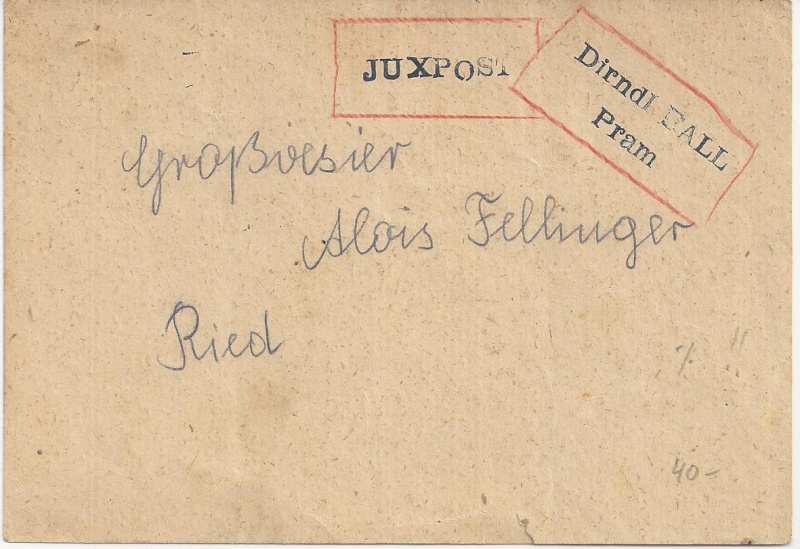 JUXPOST
Dirndl BALL
Pram
Großvesier
Alois Fellinger
Ried
40-